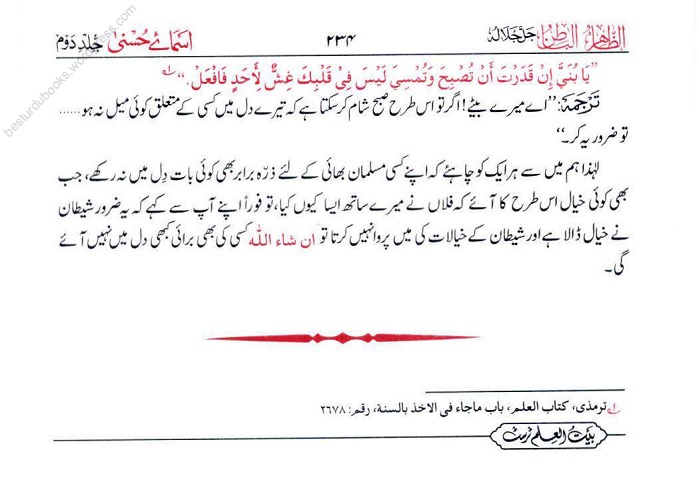 الظاهر الباطن جل جلالہ ۲۳۴ اسمائے حسنیٰ جلد دوم
”يَا بُنَيَّ إِنْ قَدَرْتَ أَنْ تُصْبِحَ وَتُمْسِيَ لَيْسَ فِيْ قَلْبِكَ غِشٌّ لِأَحَدٍ فَافْعَلْ.“ ؎۱
تَرجَمَہ: ”اے میرے بیٹے! اگر تو اس طرح صبح شام کر سکتا ہے کہ تیرے دل میں کسی کے متعلق کوئی میل نہ ہو......
تو ضرور یہ کر۔“
لہٰذا ہم میں سے ہر ایک کو چاہئے کہ اپنے کسی مسلمان بھائی کے لئے ذرّہ برابر بھی کوئی بات دِل میں نہ رکھے، جب
بھی کوئی خیال اس طرح کا آئے کہ فلاں نے میرے ساتھ ایسا کیوں کیا، تو فوراً اپنے آپ سے کہے کہ یہ ضرور شیطان
نے خیال ڈالا ہے اور شیطان کے خیالات کی میں پروا نہیں کرتا تو ان شاء اللہ کسی کی بھی برائی کبھی دل میں نہیں آئے
گی۔
؎۱ ترمذی، کتاب العلم، باب ماجاء فی الاخذ بالسنة، رقم: ۲۶۷۸
بیت العلم ٹرسٹ
besturdubooks.wordpress.com